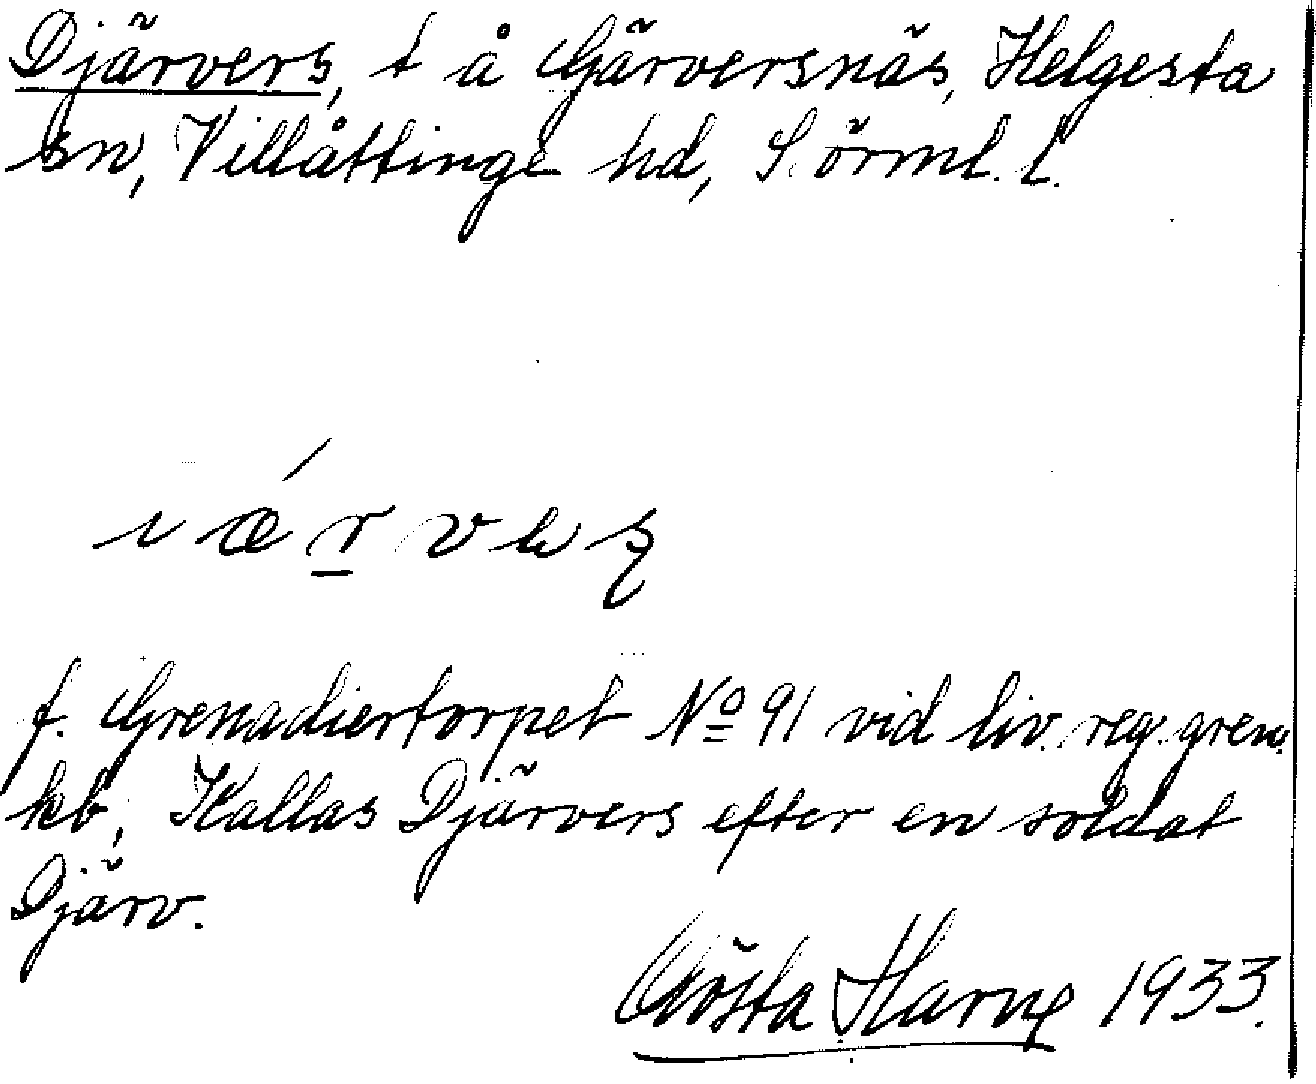 Djärvers, t å Gärversnäs, Helgesta
sn, Villåttinge hd, Sörml. l.
f. Grenadiertorpet Nº 91 vid liv. reg. gren.
kb, Kallas Djärvers efter en soldat
Djärv.
Gösta Harne 1933.